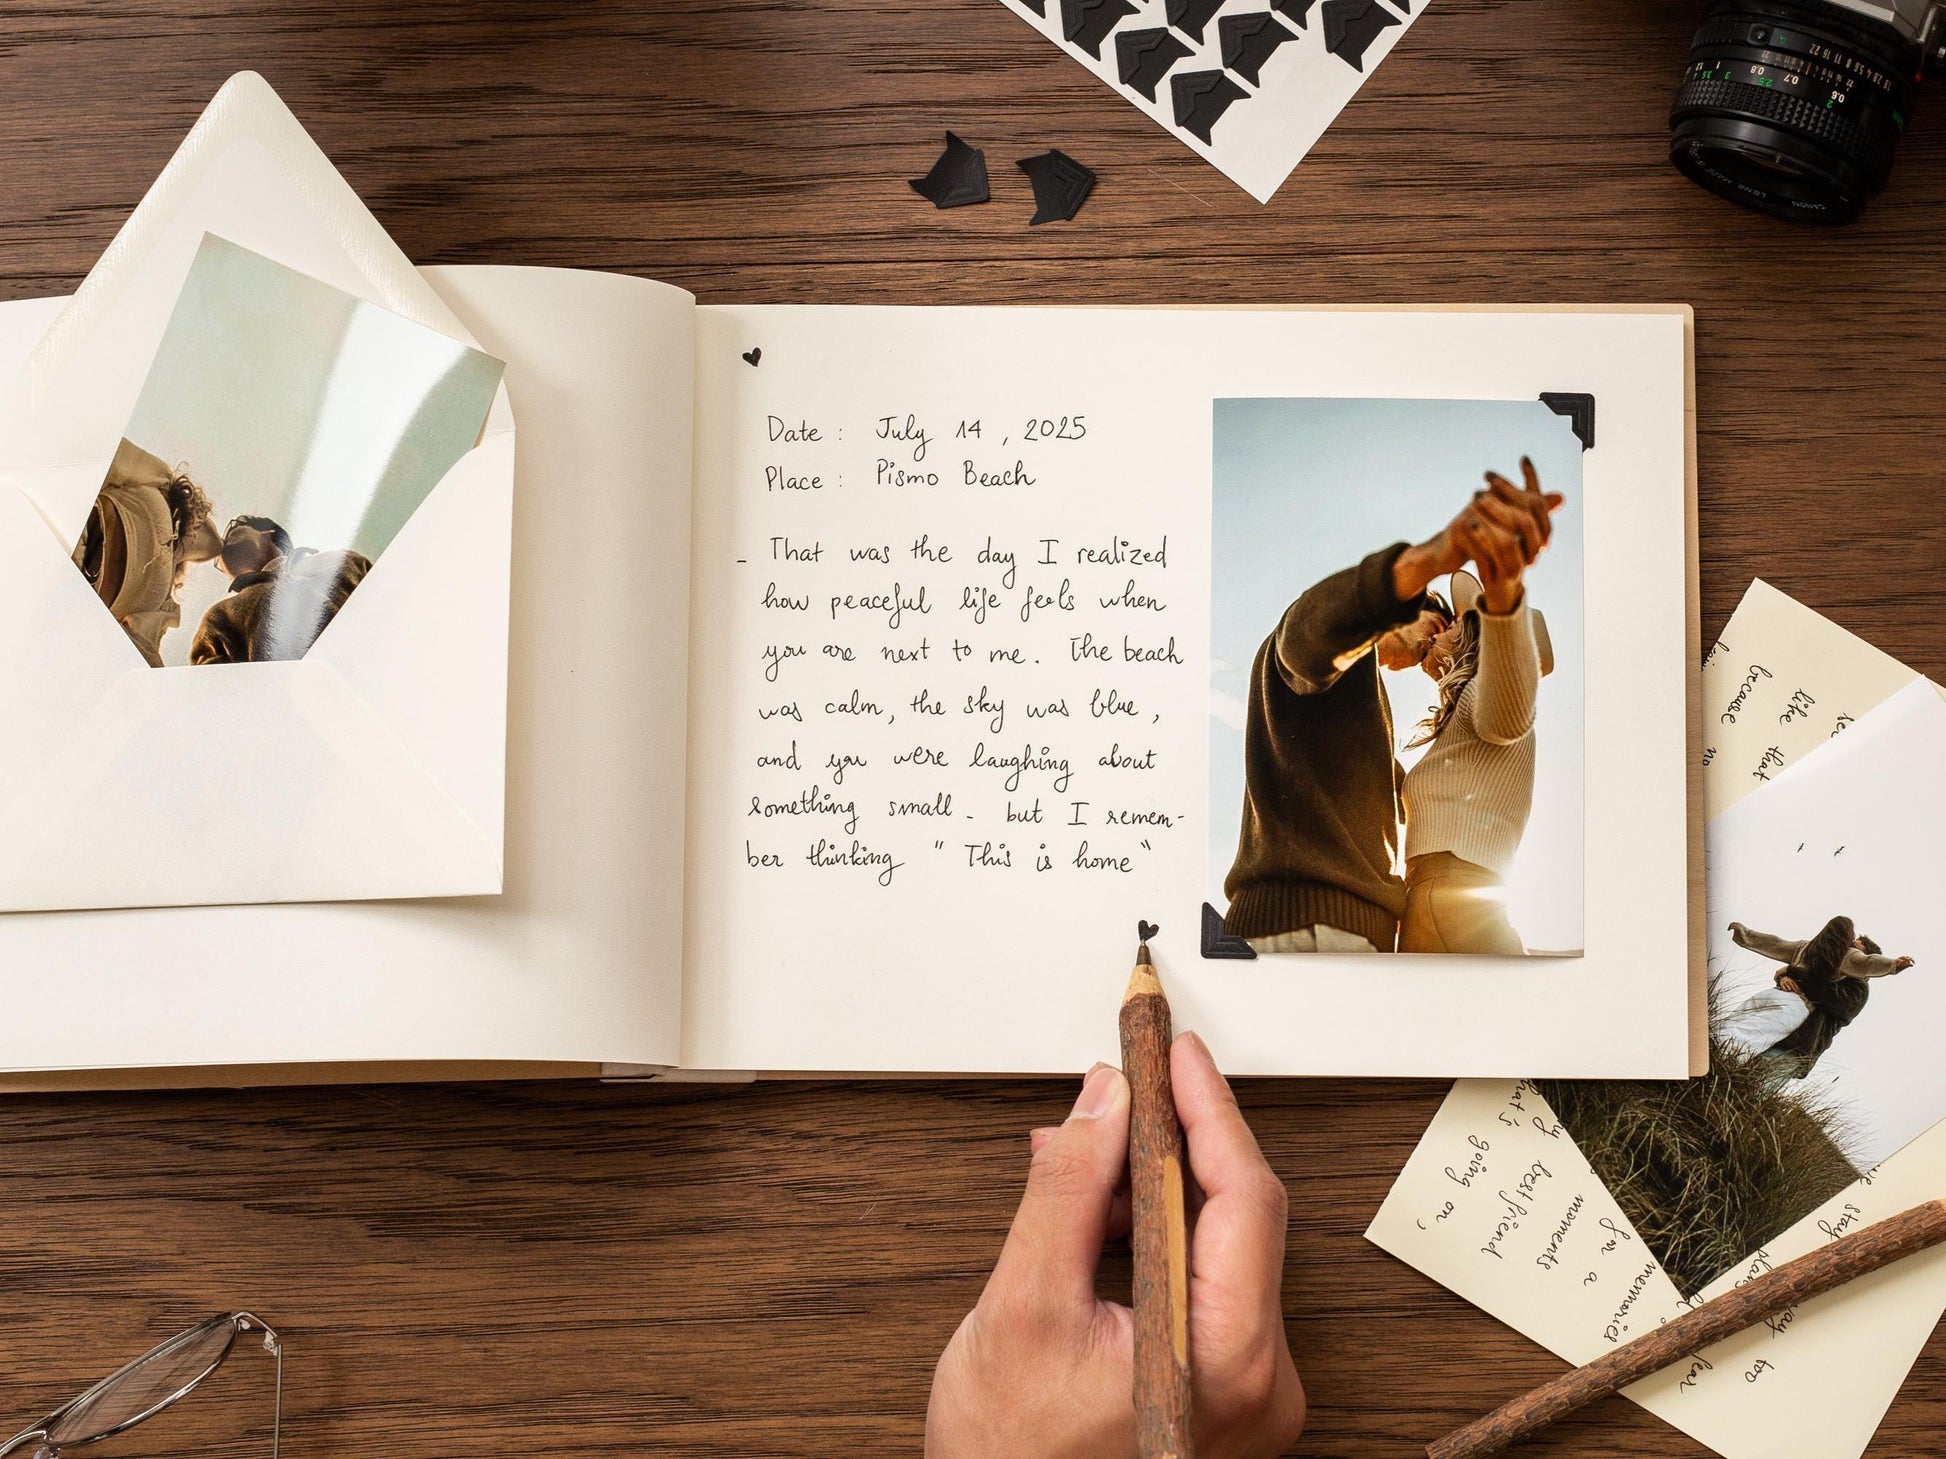 Date : July 14 , 2025
Place : Pismo Beach
- That was the day I realized
how peaceful life feels when
you are next to me. The beach
was calm, the sky was blue,
and you were laughing about
something small - but I remem-
ber thinking " This is home"
because
like that
my best friend
that's going on,
moments
for a
memories
stay
way too
CANON
LENS MADE